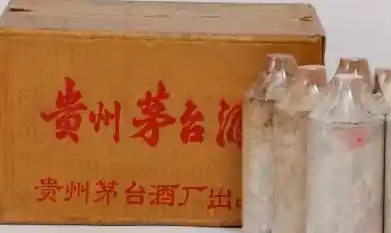 贵州茅台酒
贵州茅台酒厂出